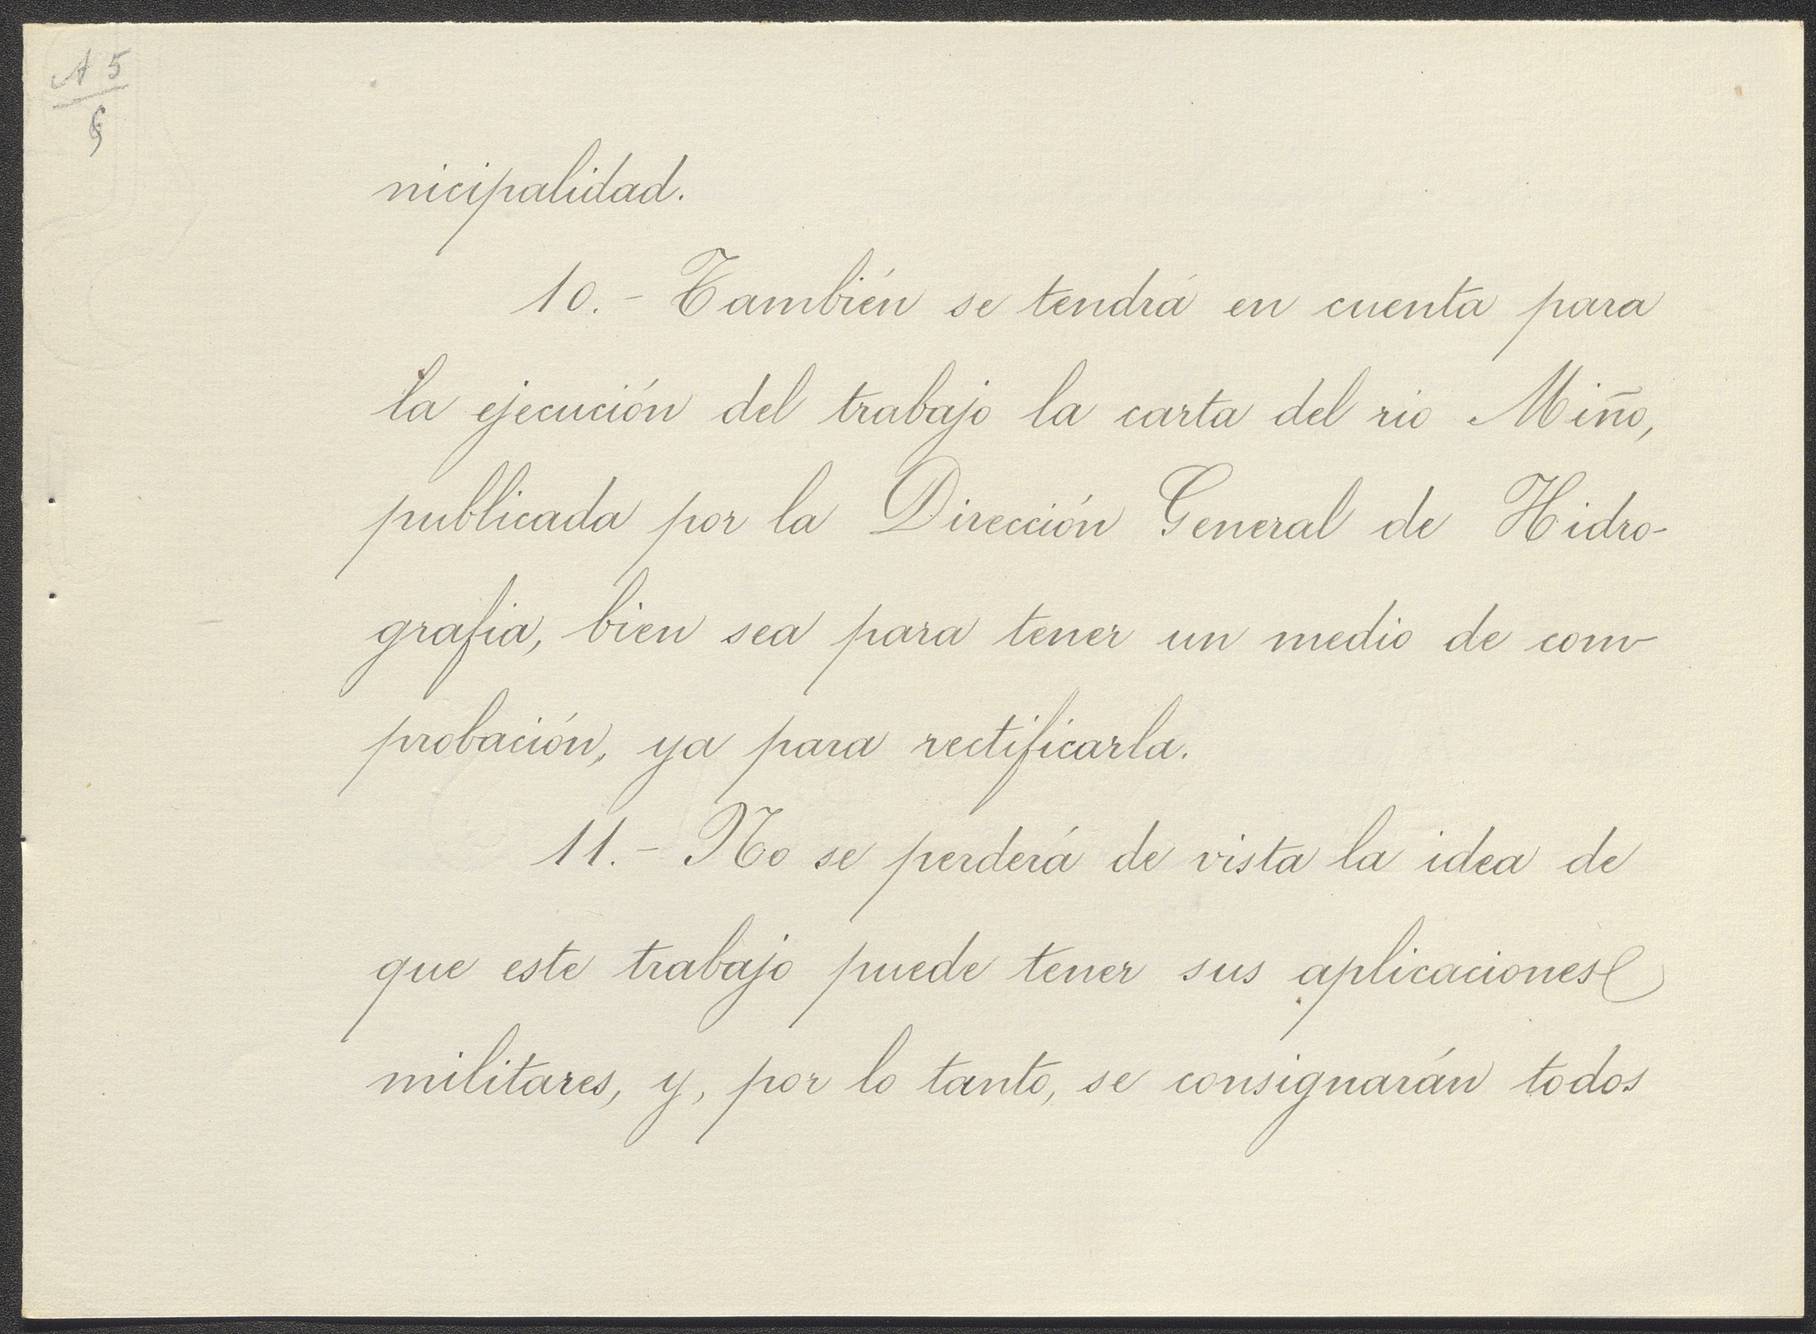 A 5
nicipalidad.
10.- También se tendrá en cuenta para
la ejecución del trabajo la carta del rio Miño,
publicada por la Dirección General de Hidro-
grafia, bien sea para tener un medio de com-
probación, ya para rectificarla.
11.- No se perderá de vista la idea de
que este trabajo puede tener sus aplicaciones
militares, y, por lo tanto, se consignarán todos